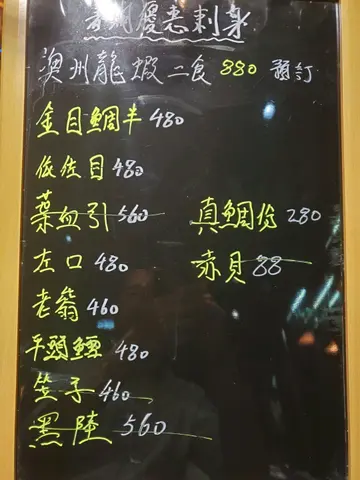 優惠刺身
澳州龍蝦二食 880 預訂
金目鯛半 480
依佐目 480
葉血引 560
真鯛份 280
左口 480
赤貝 88
老翁 460
平頭鱈 480
笙子 460
黑陸 560